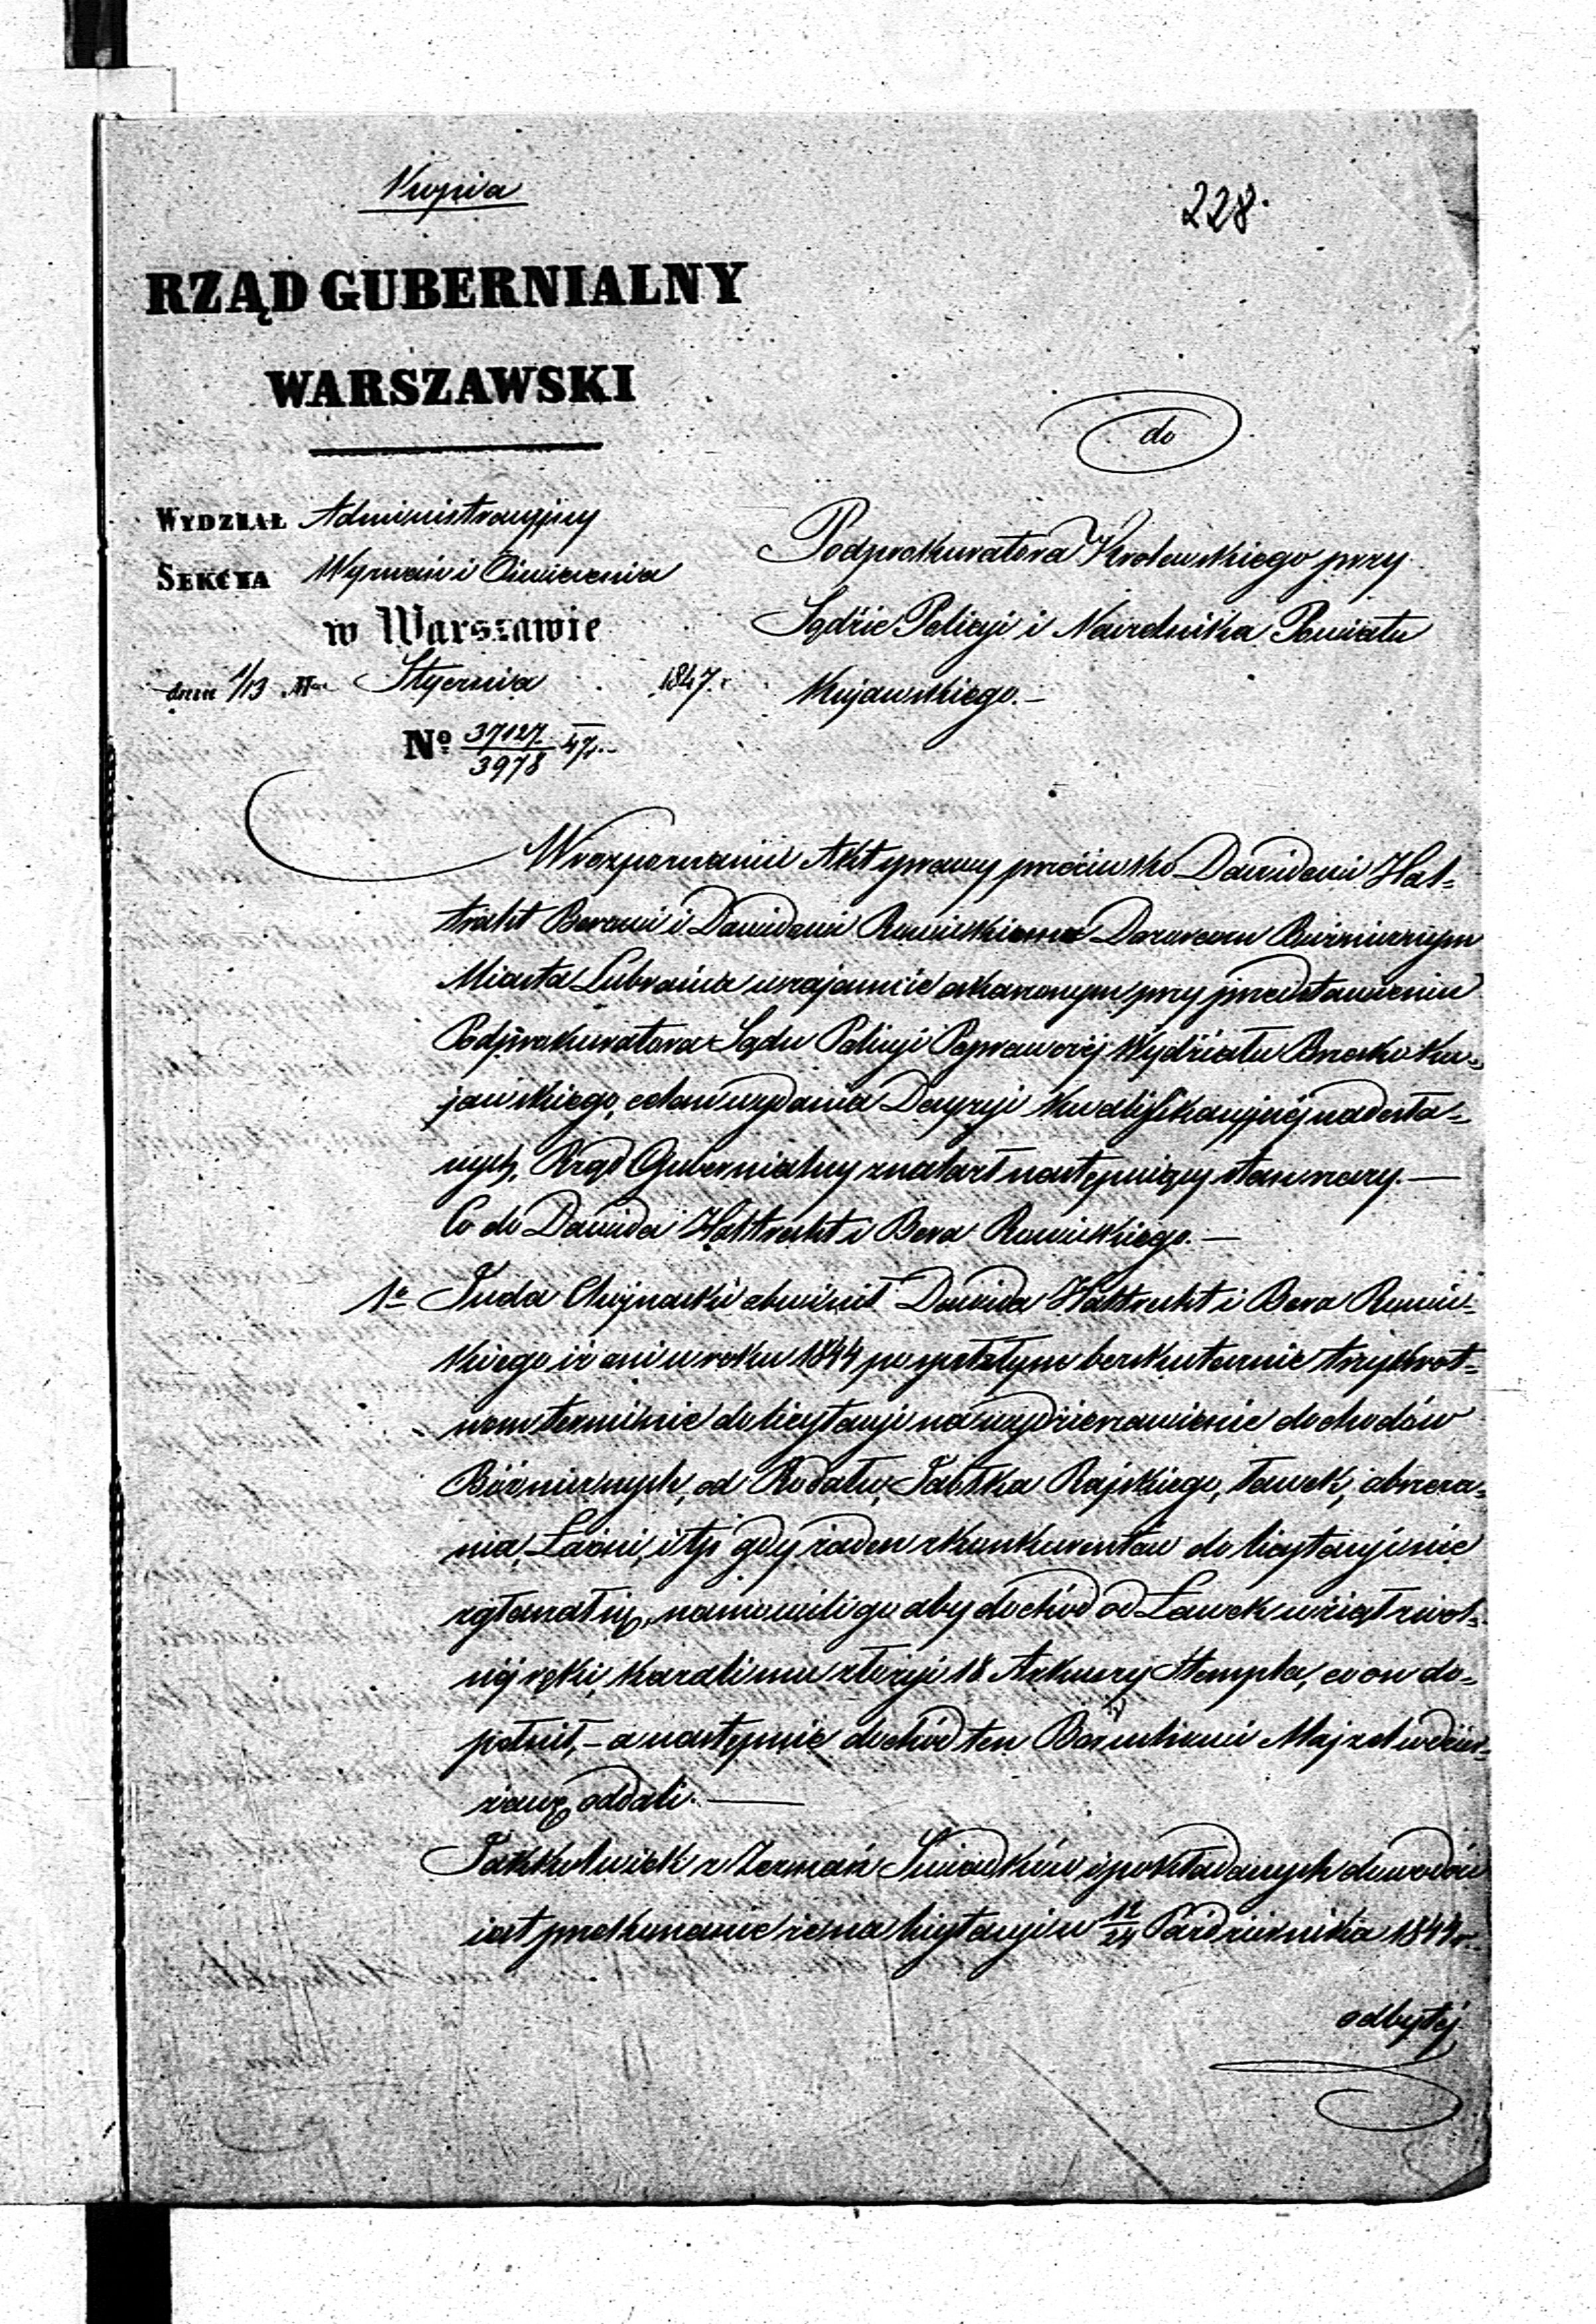 Kopia
228.
RZĄD GUBERNIALNY
WARSZAWSKI
do
WYDZIAŁ Administracyjny
SEKCYA Wyznań i Oświecenia
w Warszawie
dnia 1/13 Stycznia 1847.r
No 37127/3978 47.
Podprokuratora Krolewskiego przy
Sądzie Policyi i Naczelnika Powiatu
Kujawskiego.—
W rozpoznaniu Akt sprawy przeciwko Dawidowi Hal-
trecht Berowi i Dawidowi Rawickiemu Dozorcom Bóżnicznym
Miasta Lubrańca wzajemnie oskarzonym przy przedstawieniu
Podprokuratora Sądu Policyi Poprawczéj Wydziału Brzesko Ku-
jawskiego, celem wydania Decyzyi Kwalifikacyjnéj nadesła-
nych, Rząd Gubernialny znalazł następuiący stan rzeczy.—
Co do Dawida Haltrecht i Bera Rawickiego.—
1o Juda Chojnacki obwinił Dawida Haltrecht i Bera Rawic-
kiego iż oni w roku 1844 po spełzłym bezkutecznie trzykrot-
nem terminie do licytacyi na wydzierzawienie dochodów
Bóżnicznych, od Rodału, Jabłka Rajskiego, ławek, obrzeza-
nia, Łaźni, i t p gdy żaden z konkurentów do licytacyi nie
zgłaszał się, namówili go aby dochód od Ławek wziął z wol-
néj ręki, kazali mu złożyć 18 Arkuszy Stempla, co on do-
pełnił,— a następnie dochód ten Majzel w dzier-
żawę oddali.—
Jakkolwiek z Zeznań Świadków i pokładanych dowodów
iest przekonanie że na licytacyi w 12/24 Października 1844 r.
odbytéj